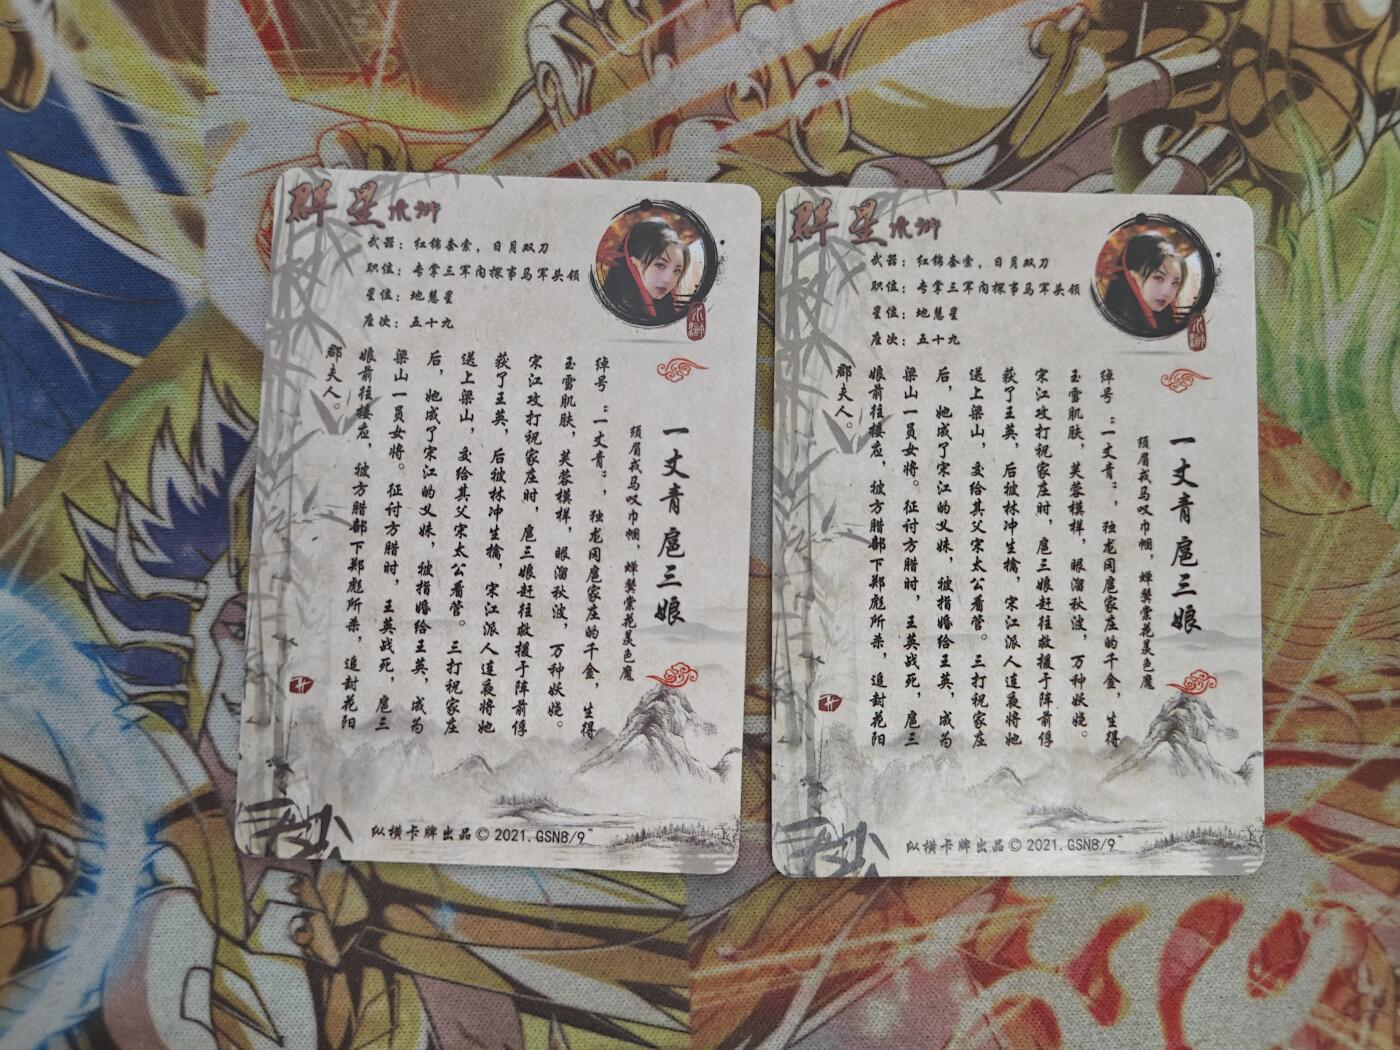 群星水浒
武器：红锦套索，日月双刀
职位：专掌三军内探事马军头领
星位：地慧星
座次：五十九
水浒
一丈青 扈三娘
须眉戎马叹巾帼，蝉鬓棠花美色魔
绰号“一丈青”，独龙岗扈家庄的千金，生得
玉雪肌肤，芙蓉模样，眼溜秋波，万种妖娆。
宋江攻打祝家庄时，扈三娘赶往救援于阵前俘
获了王英，后被林冲生擒，宋江派人连夜将她
送上梁山，交给其父宋太公看管。三打祝家庄
后，她成了宋江的义妹，被指婚给王英，成为
梁山一员女将。征讨方腊时，王英战死，扈三
娘前往接应，被方腊部下郑彪所杀，追封花阳
郡夫人。
纵横卡牌出品©2021.GSN8/9
群星水浒
武器：红锦套索，日月双刀
职位：专掌三军内探事马军头领
星位：地慧星
座次：五十九
水浒
一丈青 扈三娘
须眉戎马叹巾帼，蝉鬓棠花美色魔
绰号“一丈青”，独龙岗扈家庄的千金，生得
玉雪肌肤，芙蓉模样，眼溜秋波，万种妖娆。
宋江攻打祝家庄时，扈三娘赶往救援于阵前俘
获了王英，后被林冲生擒，宋江派人连夜将她
送上梁山，交给其父宋太公看管。三打祝家庄
后，她成了宋江的义妹，被指婚给王英，成为
梁山一员女将。征讨方腊时，王英战死，扈三
娘前往接应，被方腊部下郑彪所杀，追封花阳
郡夫人。
纵横卡牌出品©2021.GSN8/9